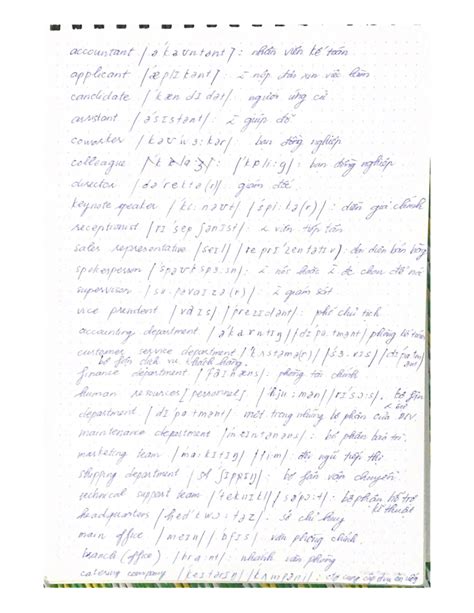 accountant /ə'kaʊntənt/: nhân viên kế toán
applicant /'æplɪkənt/: người nộp đơn xin việc làm
candidate /'kæn dɪ dət/: người ứng cử
assistant /ə'sɪstənt/: giúp đỡ
coworker /'kəʊ'wɜ:kər/: bạn đồng nghiệp
colleague /'kɒli:g/: bạn đồng nghiệp
director /də'rektə(r)/ giám đốc
keynote speaker /'ki:nəʊt/ /'spi:kə(r)/: diễn giả chính
receptionist /rɪ'sepʃənɪst/: viên tiếp tân
sales representative /seɪl/ /reprɪ'zentətɪv/: đại diện bán hàng
spokesperson /'spəʊkspɜ:sn/:
supervisor /'su:pəvaɪzə(r)/: giám sát
vice president /vaɪs/ /'prezɪdənt/: phó chủ tịch
accounting department /ə'kaʊntɪŋ/ /dɪ'pɑ:tmənt/ phòng kế toán
customer service department /'kʌstəmə(r)/ /'sɜ:vɪs/ /dɪ'pɑ:tmənt/
bộ phận dịch vụ khách hàng.
finance department /'faɪnæns/: phòng tài chính
human resources [personnel] /'hju:mən/ /rɪ'sɔ:s/. bộ phận
department /dɪ'pɑ:tmənt/ một trong những bộ phận của
maintenance department /'meɪntənəns/: bộ phận bảo trì.
marketing team /'mɑ:kɪtɪŋ/ /ti:m/: đội ngũ tiếp thị
shipping department /'ʃɪpɪŋ/: bộ phận vận chuyển
technical support team /'teknɪkl/ /sə'pɔ:t/: bộ phận hỗ trợ
kĩ thuật
headquarters /'hed'kwɔ:təz/. sở chỉ huy
main office /meɪn/ /'ɒfɪs/ văn phòng chính.
branch (office) /brɑ:nt/: nhánh văn phòng
catering company /'keɪtərɪŋ/ /'kʌmpəni/: cung cấp